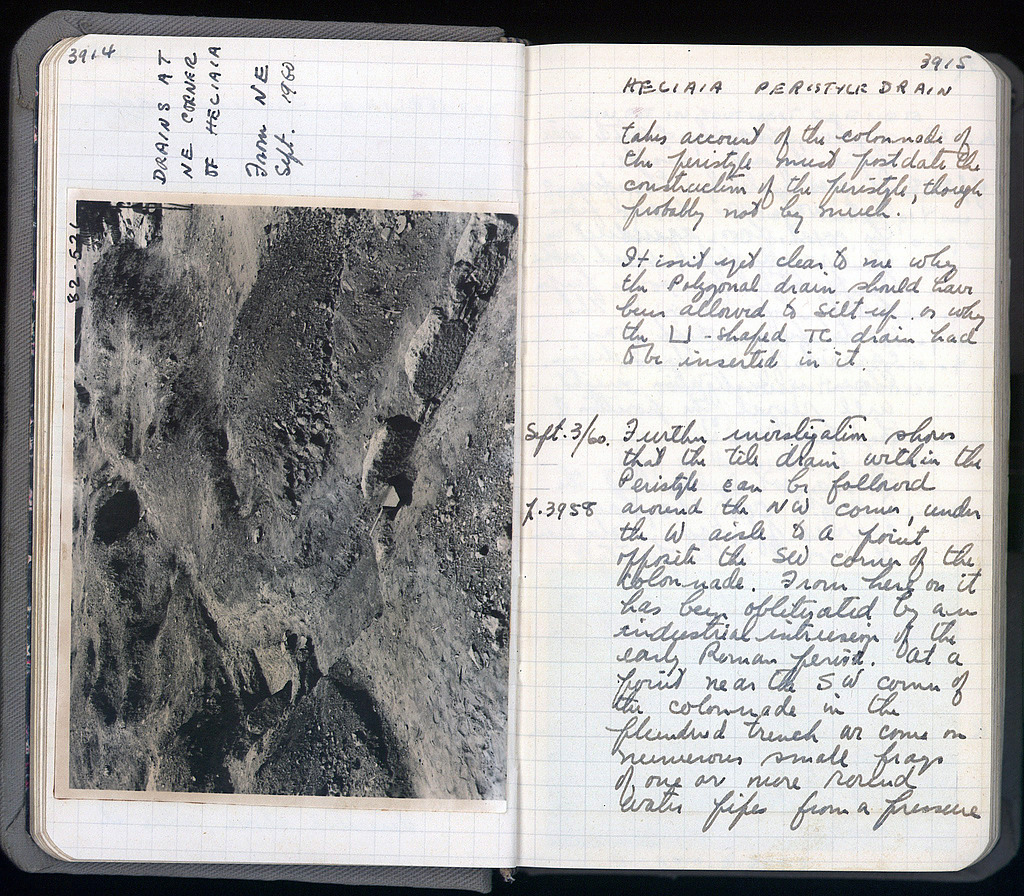 3914
DRAINS AT
NE CORNER
OF HELIAIA
From NE
Sept. 1960
82-521
3915
HELIAIA PERISTYLE DRAIN
takes account of the colonnade of
the peristyle must post date the
construction of the peristyle, though
probably not by much.
It isn't yet clear to me why
the Polygonal drain should have
been allowed to silt up or why
the ⊔-shaped TC drain had
to be inserted in it.
Sept. 3/60. Further investigation shows
that the tile drain within the
Peristyle can be followed
f.3958 around the NW corner, under
the W aisle to a point
opposite the SW corner of the
colonnade. From here on it
has been obliterated by an
industrial intrusion of the
early Roman period. At a
point near the SW corner of
the colonnade in the
plundred trench we come on
numerous small frags
of one or more round
water pipes from a pressure